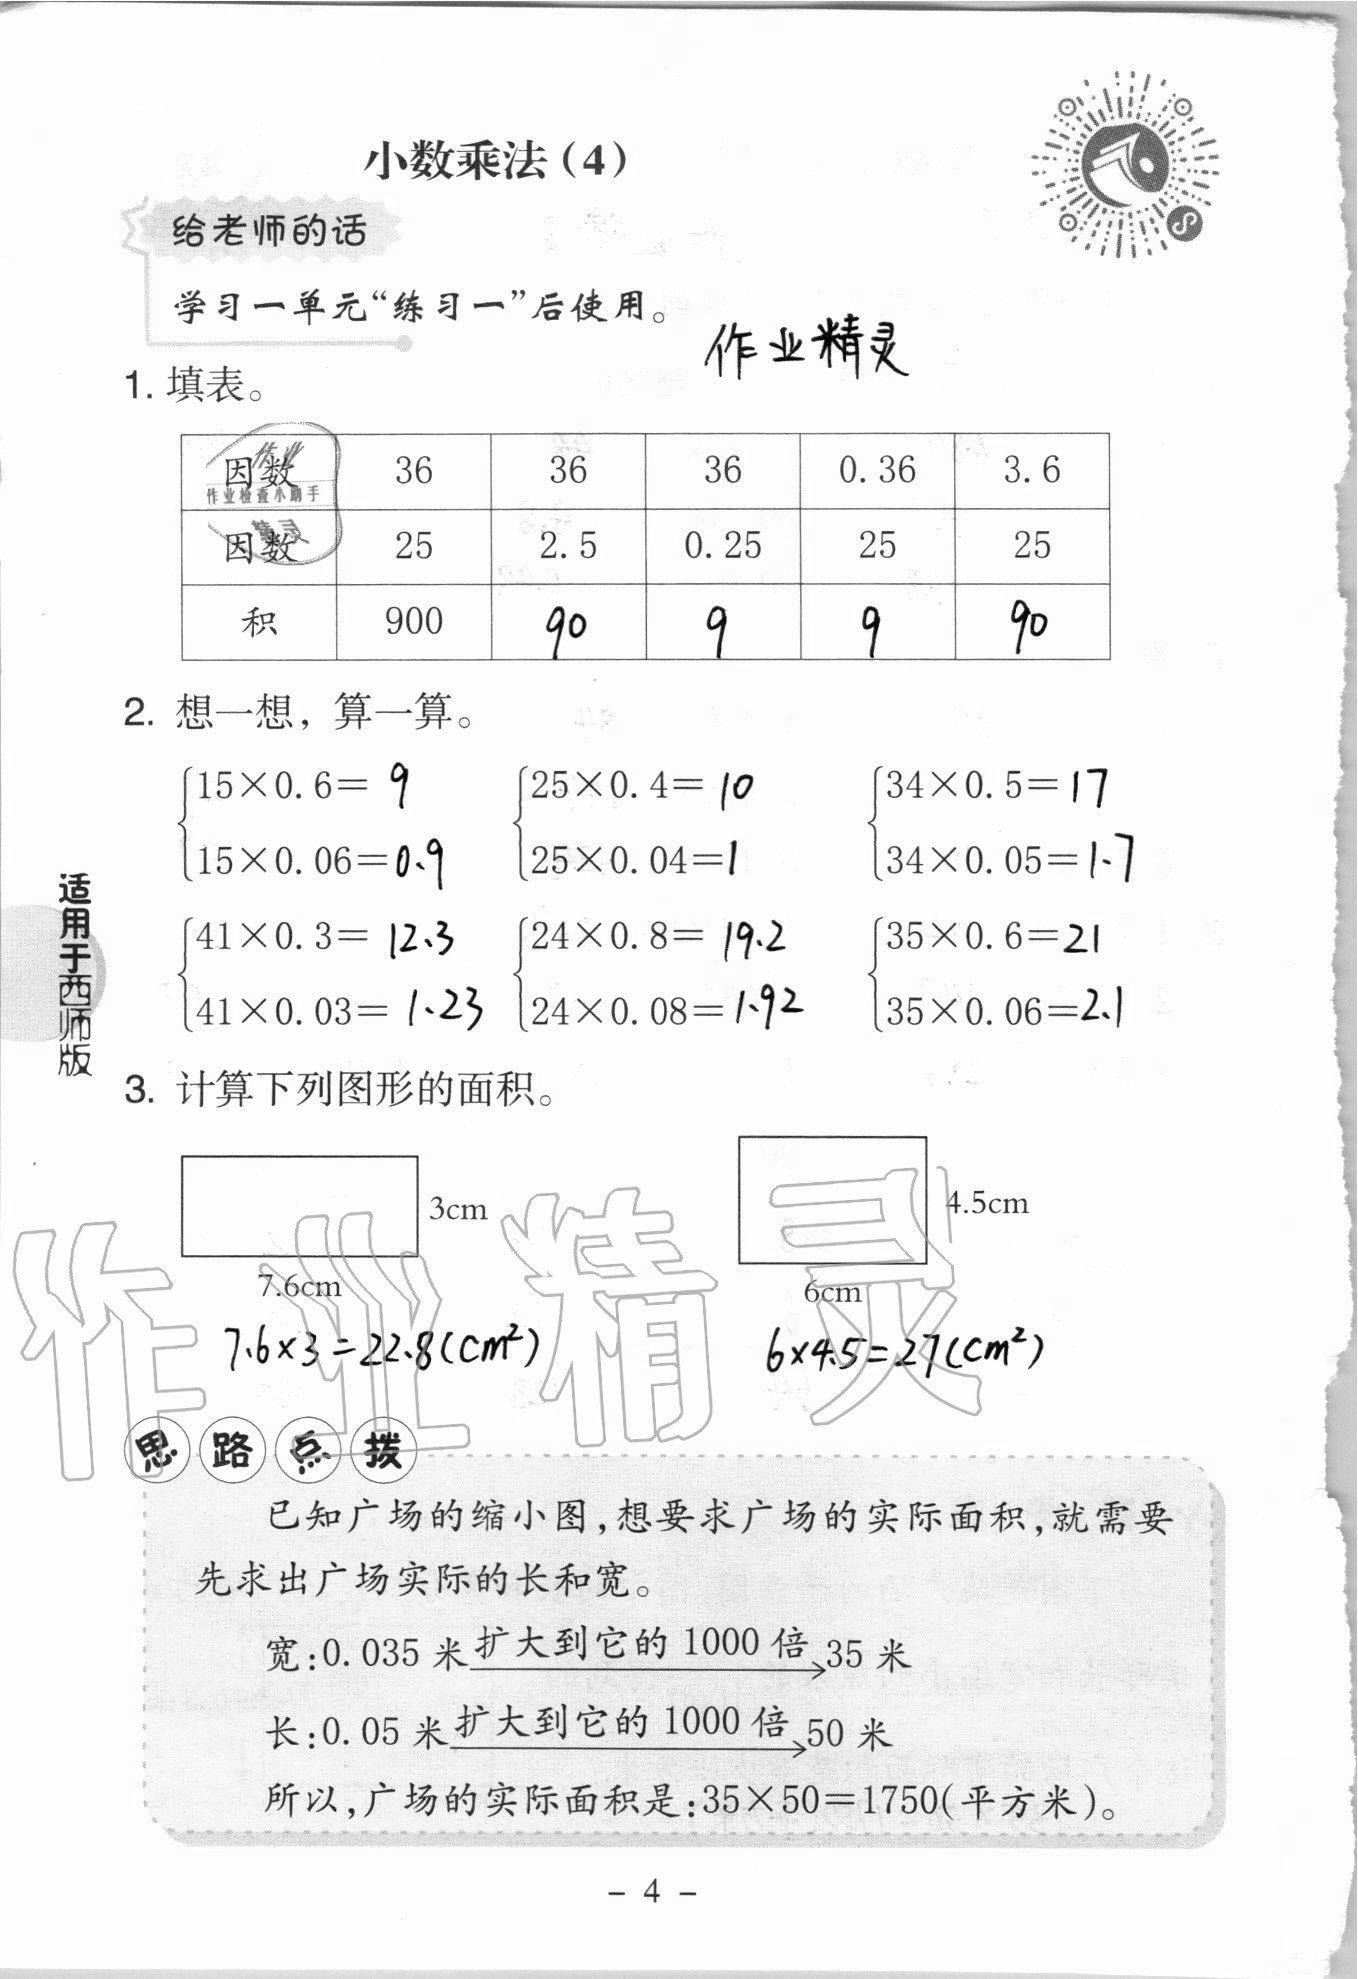 小数乘法(4)
给老师的话
学习一单元“练习一”后使用。
作业精灵
1. 填表。
因数 36 36 36 0.36 3.6
作业检查小助手
因数 25 2.5 0.25 25 25
积 900 90 9 9 90
2. 想一想，算一算。
15×0.6=9 25×0.4=10 34×0.5=17
15×0.06=0.9 25×0.04=1 34×0.05=1.7
41×0.3=12.3 24×0.8=19.2 35×0.6=21
41×0.03=1.23 24×0.08=1.92 35×0.06=2.1
适用于西师版
3. 计算下列图形的面积。
3cm 4.5cm
7.6cm 6cm
作业精灵
7.6×3=22.8(cm²) 6×4.5=27(cm²)
思路点拨
已知广场的缩小图,想要求广场的实际面积,就需要
先求出广场实际的长和宽。
宽:0.035 米 扩大到它的 1000 倍 35 米
长:0.05 米 扩大到它的 1000 倍 50 米
所以,广场的实际面积是:35×50=1750(平方米)。
- 4 -